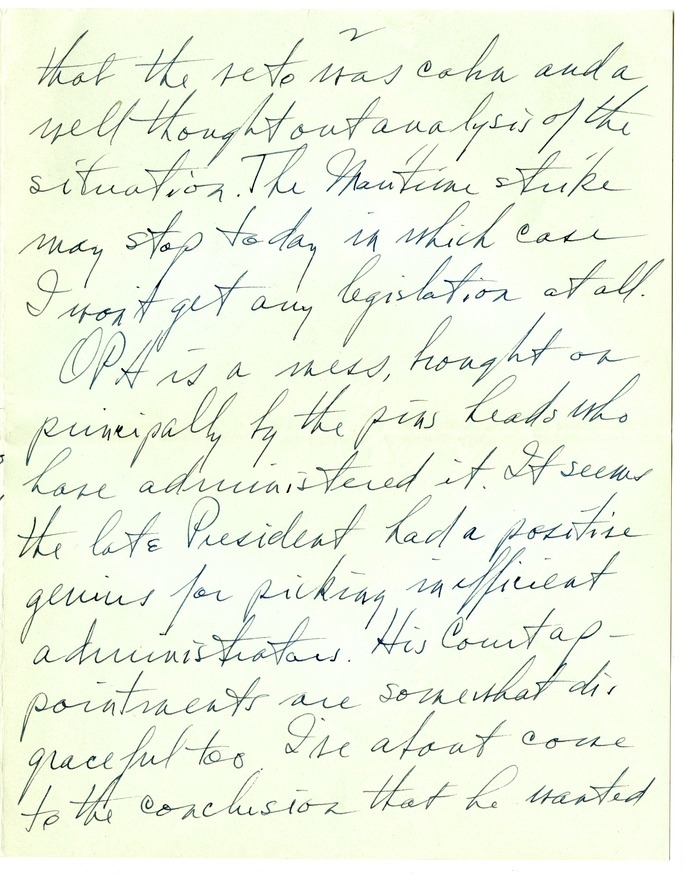 2
that the veto was calm and a
well thought out analysis of the
situation. The Maritime strike
may stop today in which case
I won't get any legislation at all.
OPA is a mess, brought on
principally by the pins heads who
have administered it. It seems
the late President had a positive
genius for picking inefficient
administrators. His Court ap-
pointments are somewhat dis
graceful too. I've about come
to the conclusion that he wanted